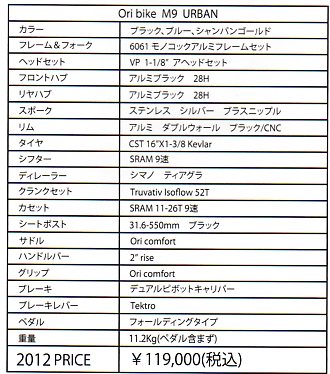 Ori bike M9 URBAN
カラー ブラック、ブルー、シャンパンゴールド
フレーム＆フォーク 6061 モノコックアルミフレームセット
ヘッドセット VP 1-1/8" アヘッドセット
フロントハブ アルミブラック 28H
リヤハブ アルミブラック 28H
スポーク ステンレス シルバー ブラスニップル
リム アルミ ダブルウォール ブラック/CNC
タイヤ CST 16"X1-3/8 Kevlar
シフター SRAM 9速
ディレーラー シマノ ティアグラ
クランクセット Truvativ Isoflow 52T
カセット SRAM 11-26T 9速
シートポスト 31.6-550mm ブラック
サドル Ori comfort
ハンドルバー 2" rise
グリップ Ori comfort
ブレーキ デュアルピボットキャリパー
ブレーキレバー Tektro
ペダル フォールディングタイプ
重量 11.2Kg(ペダル含まず)
2012 PRICE ￥119,000(税込)